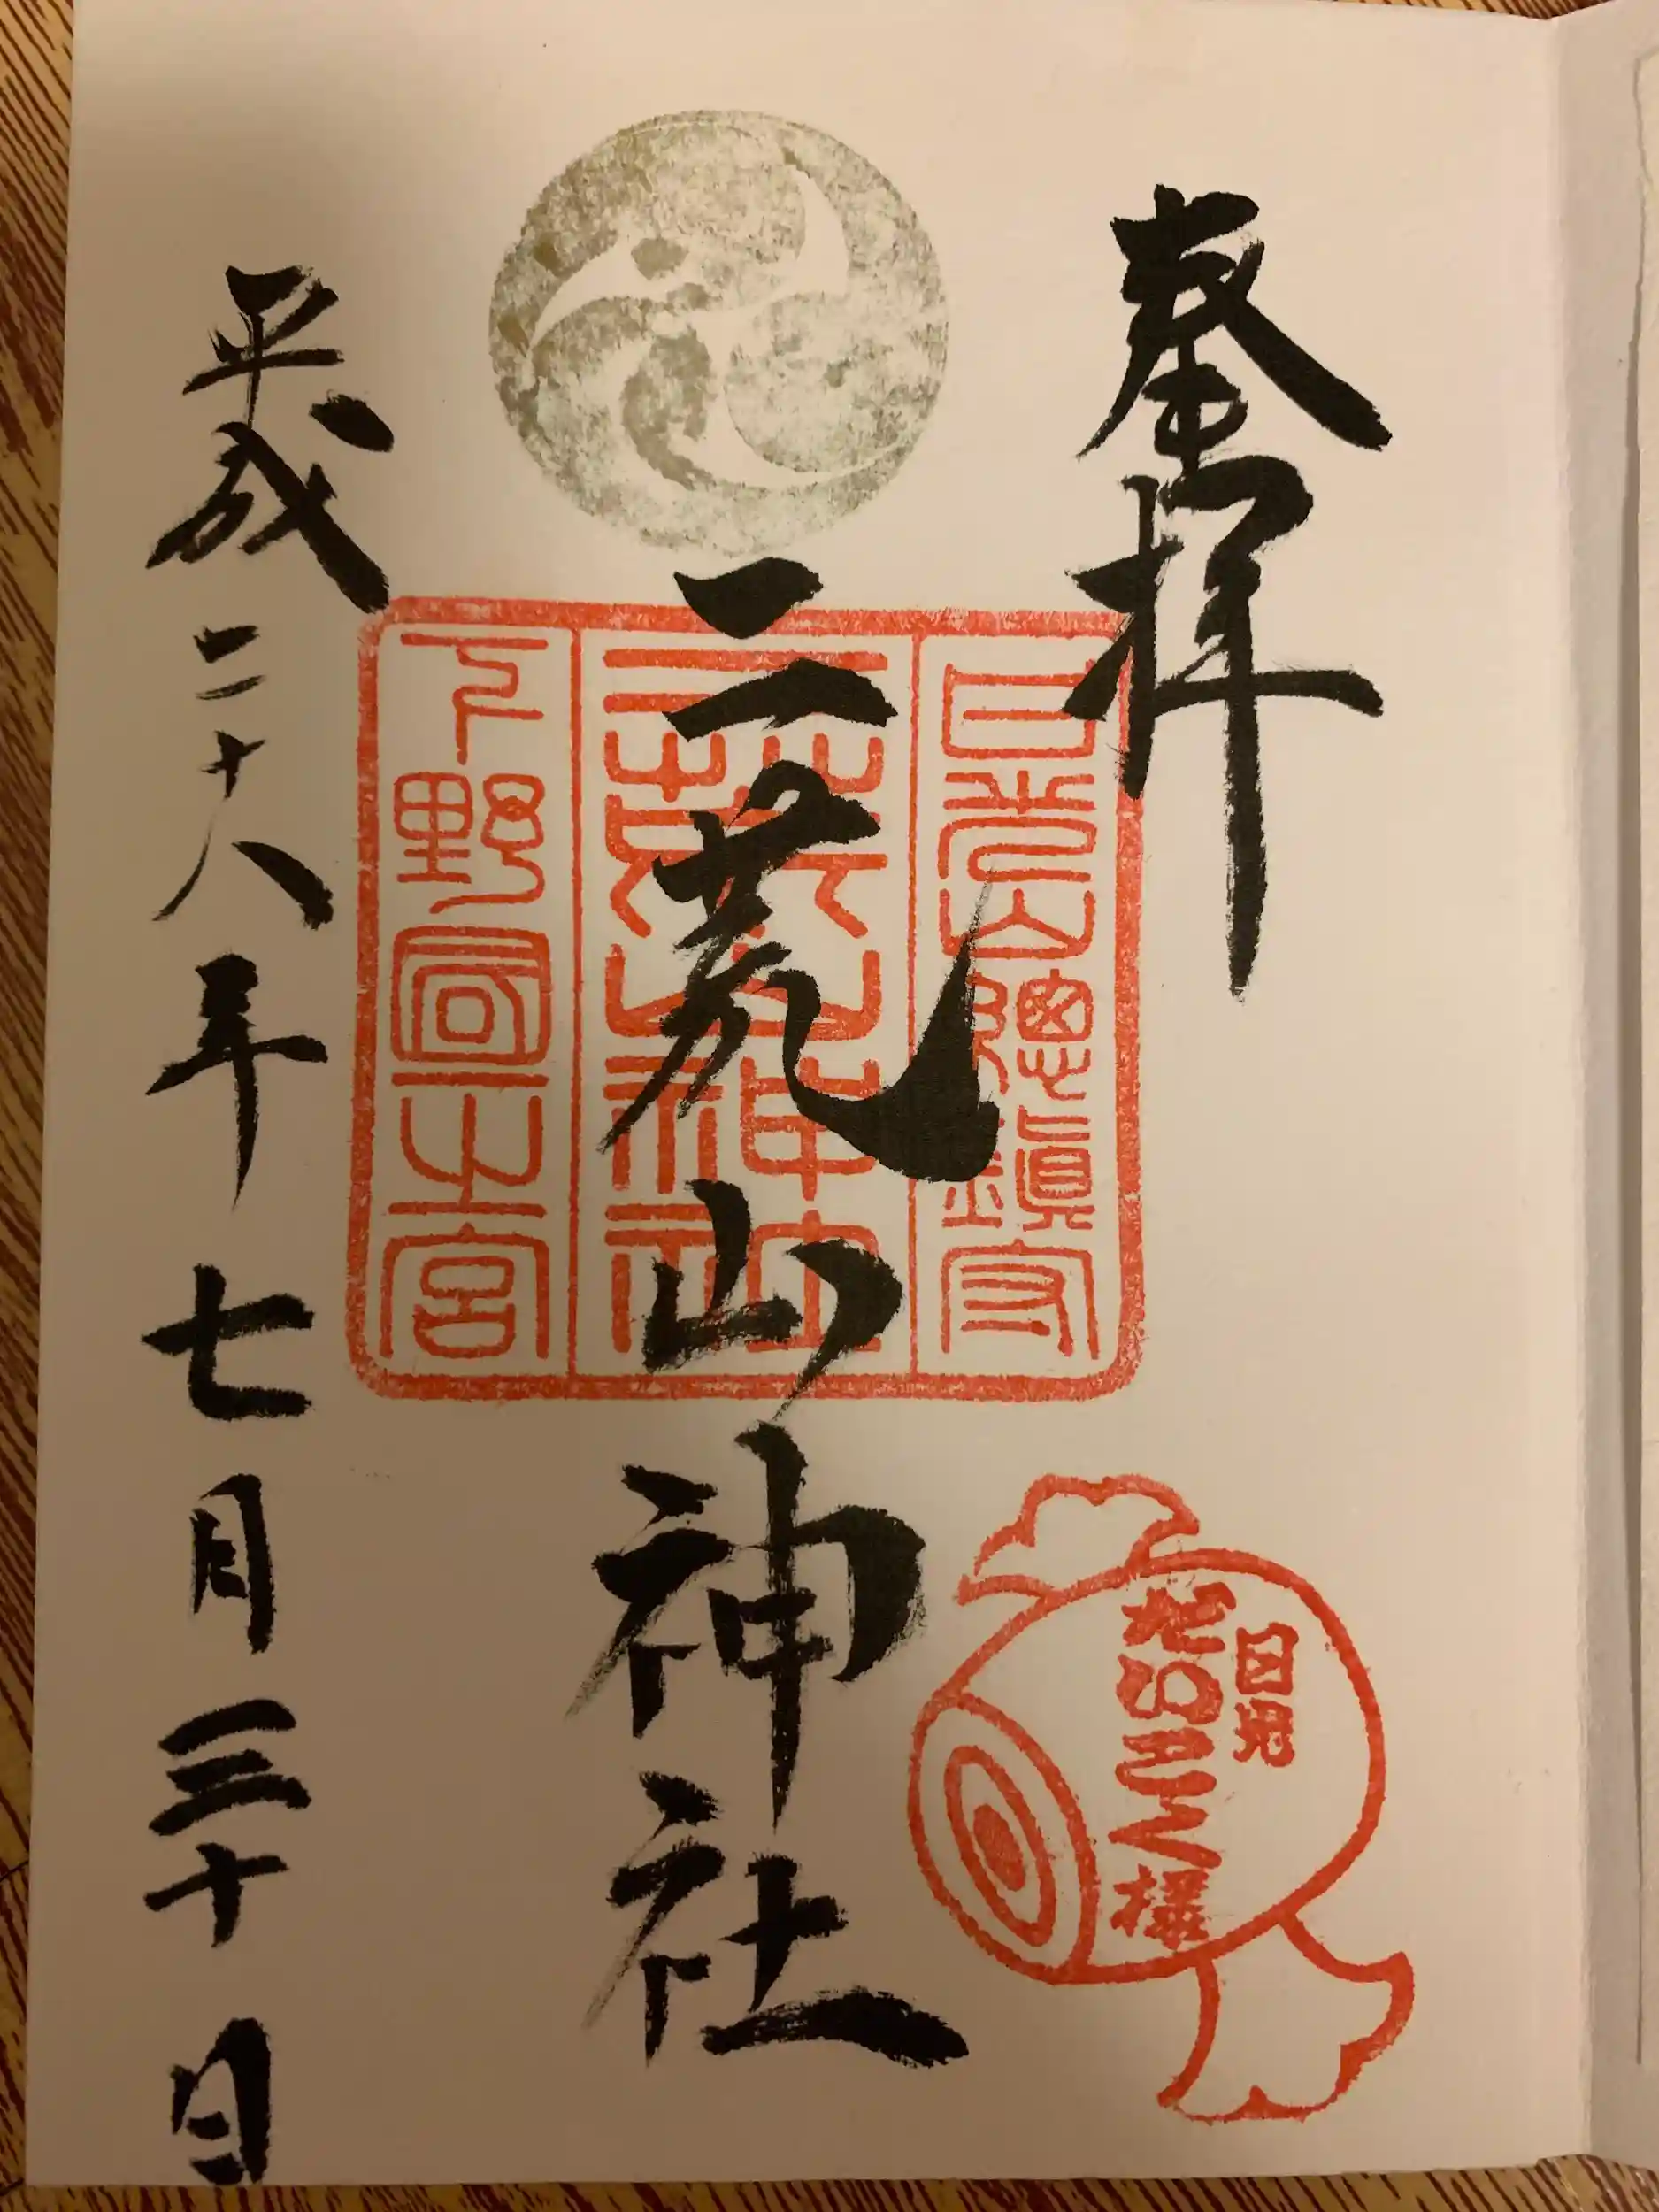 奉拝
日光山總鎮守
二荒山神社
二荒山神社
下野國一之宮
平成二十八年七月三十日
日光
だいこく様